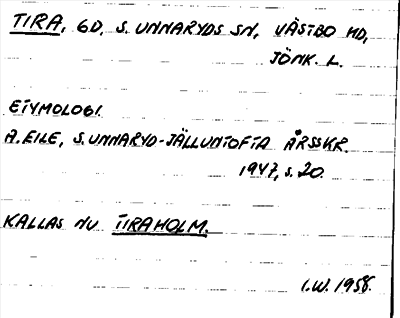 TIRA, GD, S. UNNARYDS SN, VÄSTBO HD,
JÖNK. L.
ETYMOLOGI.
A. EILE, S. UNNARYD-JÄLLUNTOFTA ÅRSSKR.
1947, S. 20.
KALLAS NU TIRAHOLM.
I.W. 1958.